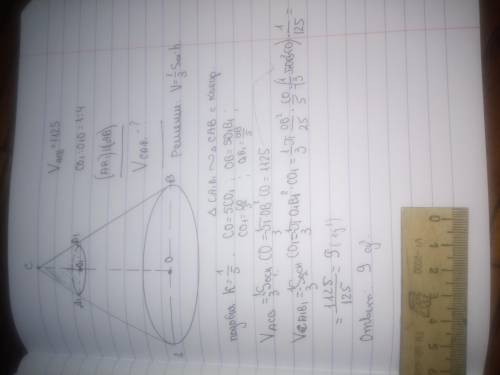 V_ACB = 1125
CO₁ : O₁O = 1:4
(A₁B₁) || (AB)
V_CA₁B₁ - ?
Решение: V = 1/3 S_осн h.
△ CA₁B₁ ~ △ CAB с
k = 1/5. CO = 5CO₁; OB = 5O₁B₁;
CO₁ = CO/5; O₁B₁ = OB/5
V_ACB = 1/3 S_осн CO = 1/3 π OB² CO = 1125
V_CA₁B₁ = 1/3 S_осн CO₁ = 1/3 π O₁B₁² · CO₁ = 1/3 π OB²/25 · CO/5 = (1/3 π OB² CO) · 1/125 =
= 1125/125 = 9 (ед³)
Ответ: 9 ед³
C
A₁
O₁
B₁
A
O
B
0 1 2 3 4 5 6